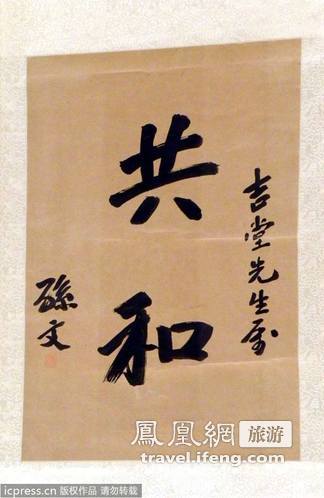 吉堂先生
共和
孫文
鳳凰網 旅游
travel.ifeng.com
icpress.cn 版权作品 请勿转载